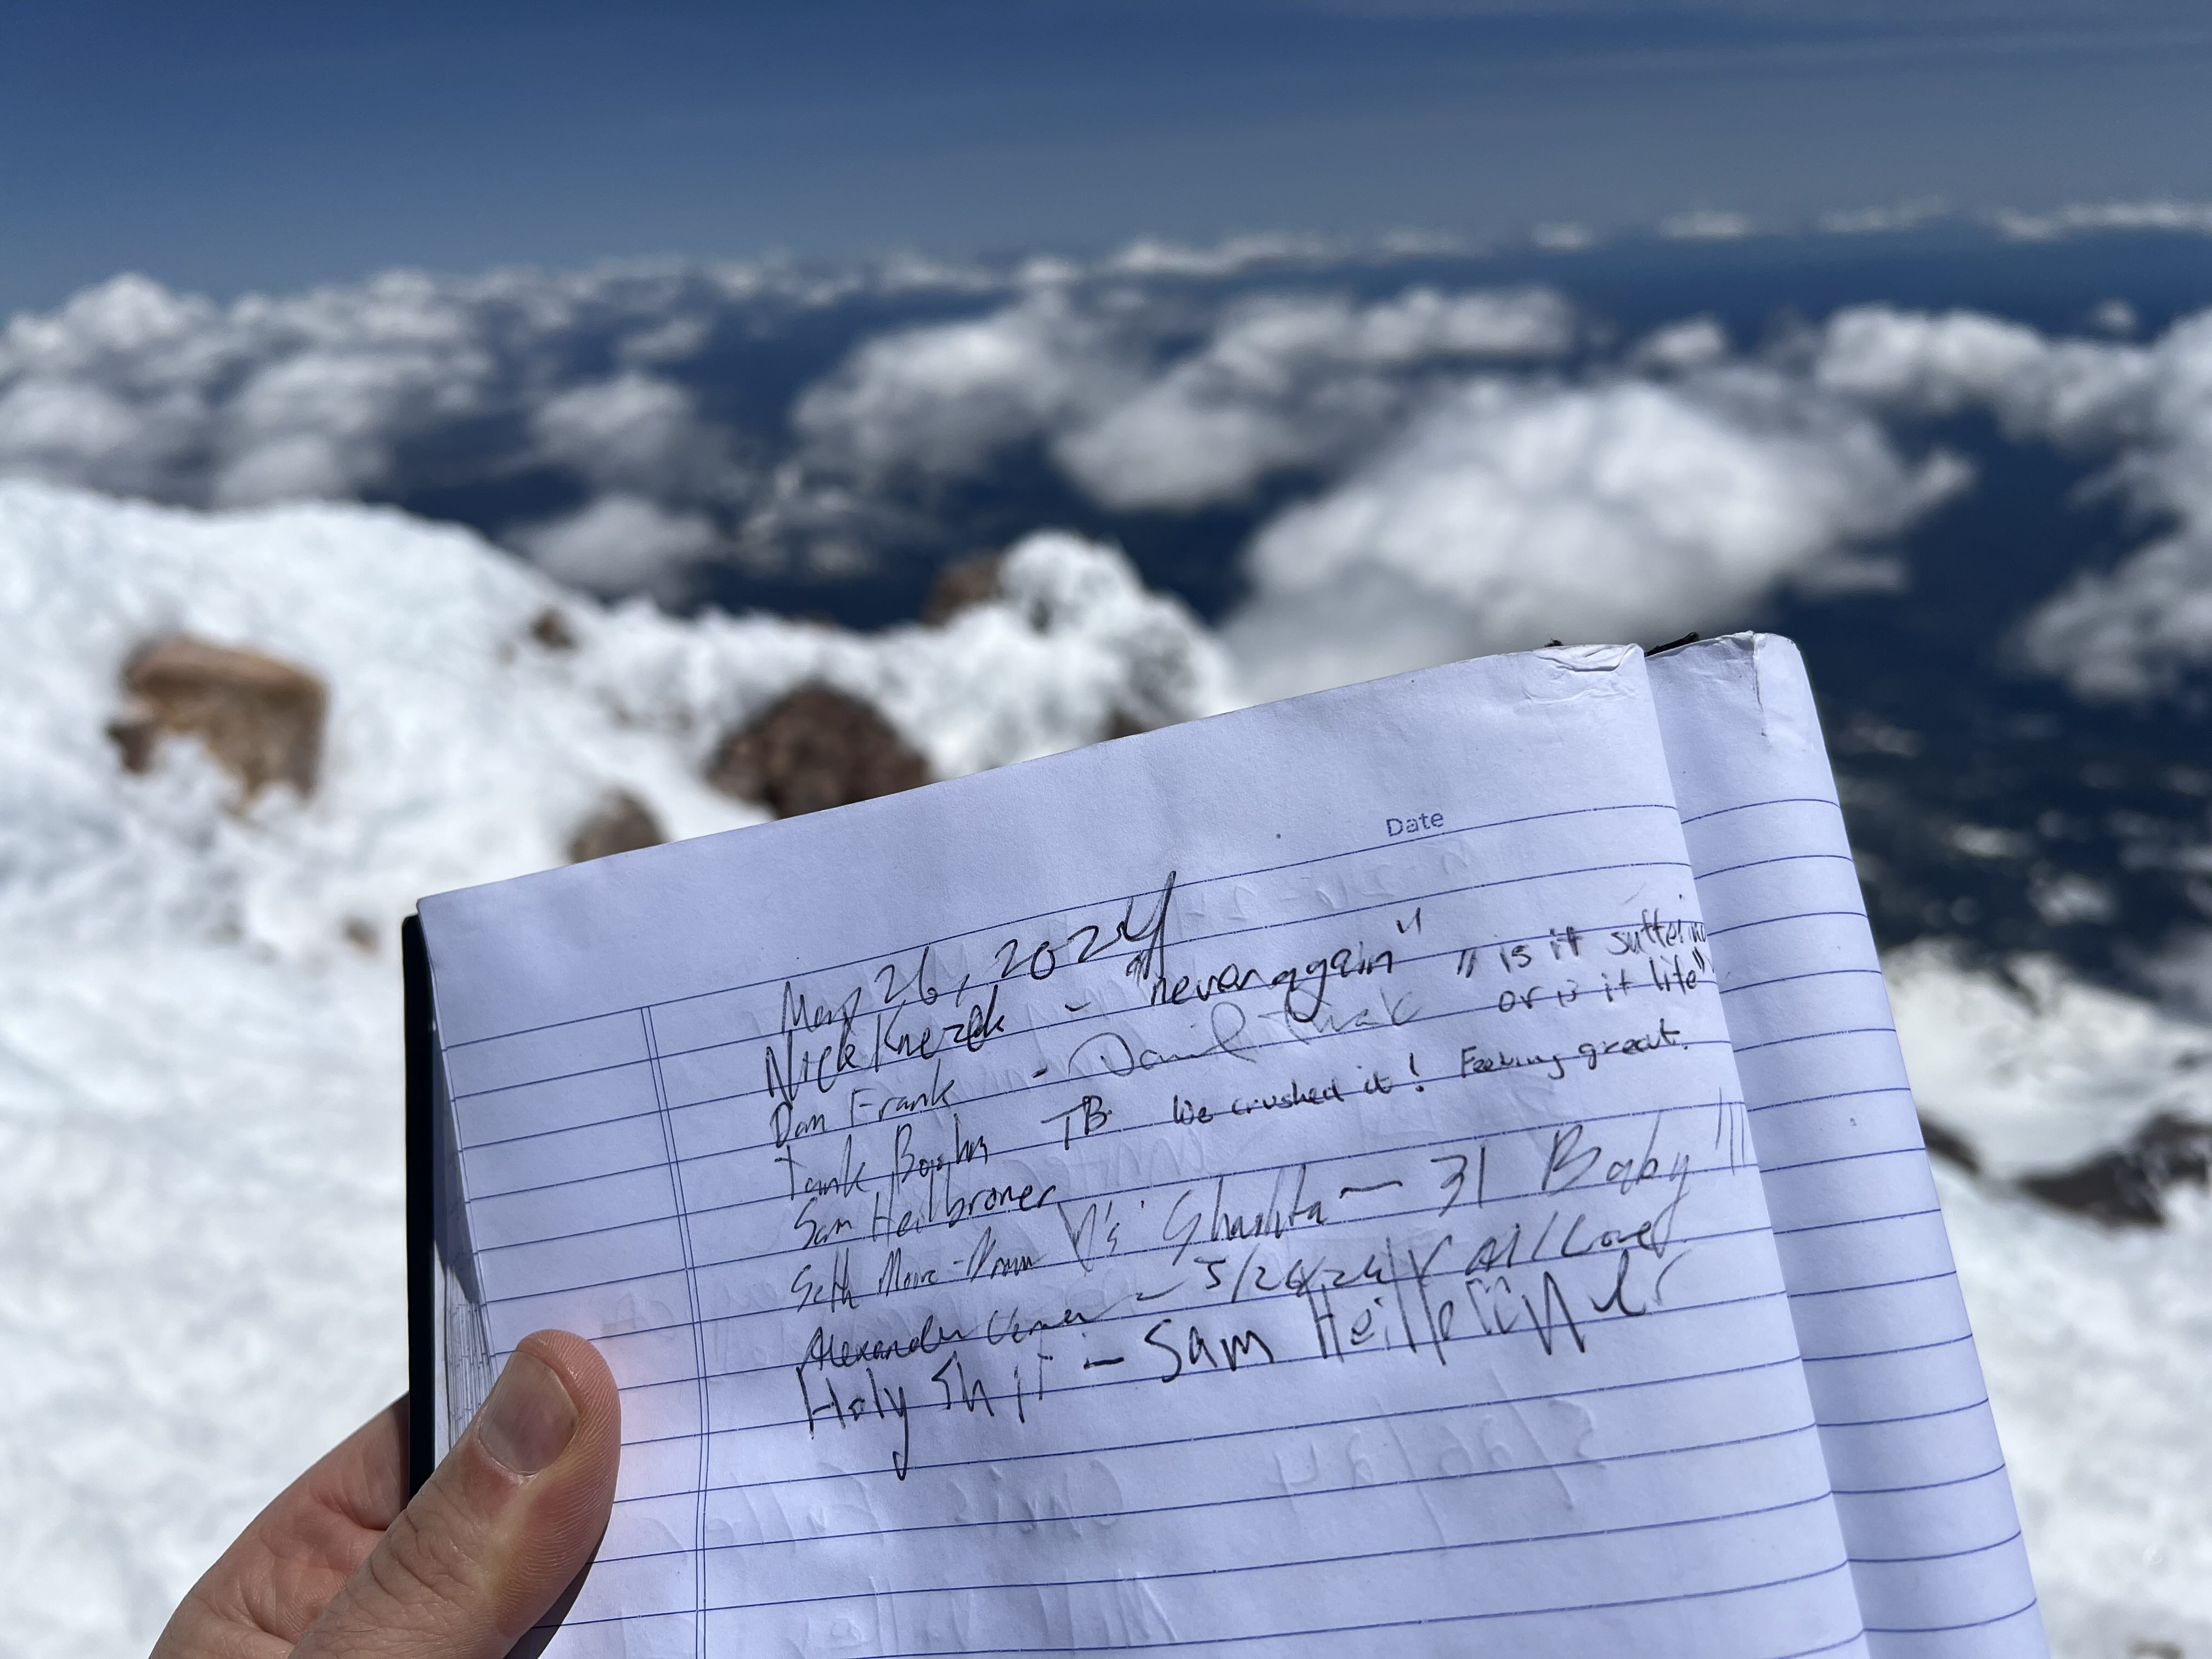 Date
May 26, 2024
Nick Knezek - "never again" "is it suffering
or is it life"
Dan Frank - Daniel Frank
Tank TB We crushed it! Feeling great.
Sam Heilbroner
Seth Shasta - 31 Baby!!!
Alexander - 5/26/24 All Love
Holy Shit - Sam Heilbroner